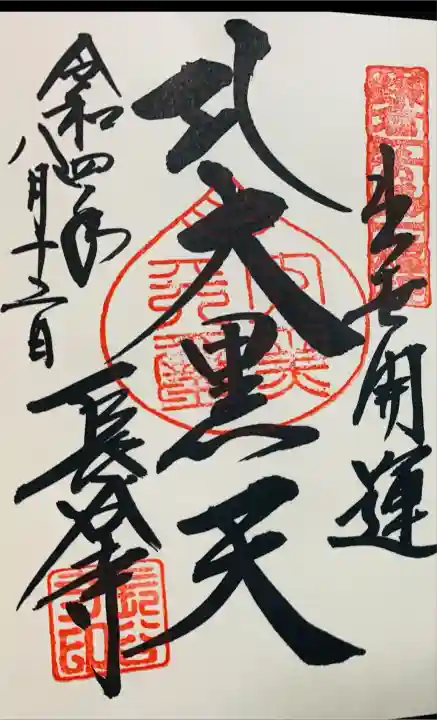 出世開運
大黒天
長谷寺
令和四年
八月十五日